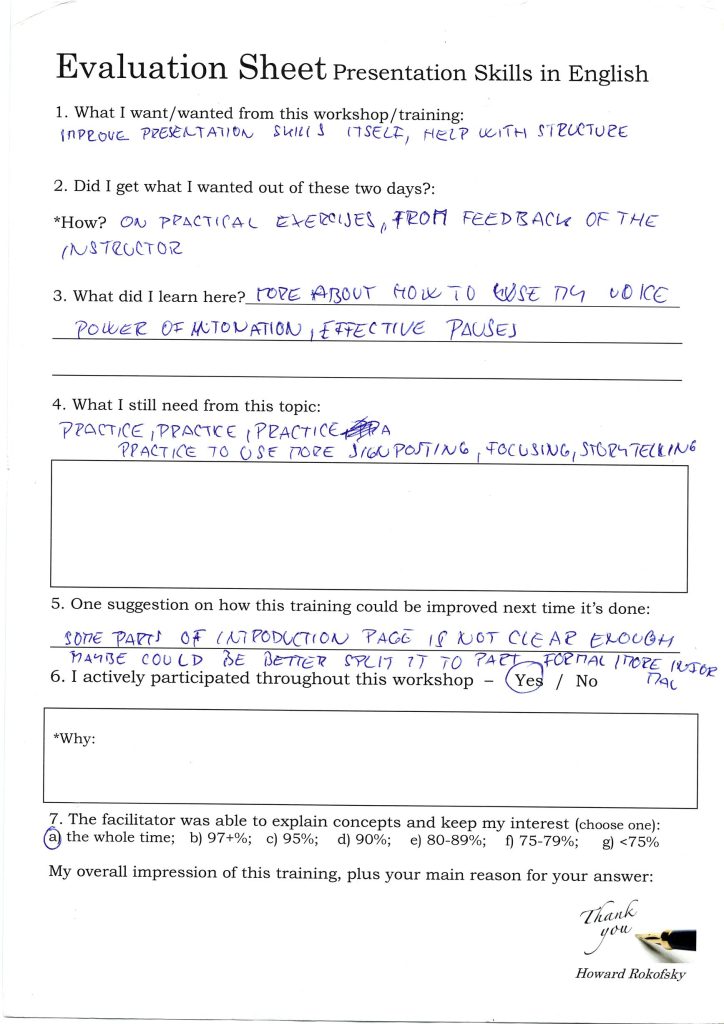 Evaluation Sheet Presentation Skills in English
1. What I want/wanted from this workshop/training:
IMPROVE PRESENTATION SKILLS ITSELF, HELP WITH STRUCTURE
2. Did I get what I wanted out of these two days?:
*How? ON PRACTICAL EXERCISES, FROM FEEDBACK OF THE
INSTRUCTOR
3. What did I learn here? MORE ABOUT HOW TO USE MY VOICE
POWER OF INTONATION, EFFECTIVE PAUSES
4. What I still need from this topic:
PRACTICE, PRACTICE, PRACTICE
PRACTICE TO USE MORE SIGNPOSTING, FOCUSING, STORYTELLING
5. One suggestion on how this training could be improved next time it's done:
SOME PARTS OF INTRODUCTION PAGE IS NOT CLEAR ENOUGH
MAYBE COULD BE BETTER SPLIT IT TO PART FORMAL / MORE INFOR
MAL
6. I actively participated throughout this workshop – Yes / No
*Why:
7. The facilitator was able to explain concepts and keep my interest (choose one):
a) the whole time; b) 97+%; c) 95%; d) 90%; e) 80-89%; f) 75-79%; g) <75%
My overall impression of this training, plus your main reason for your answer:
Thank
you
Howard Rokofsky